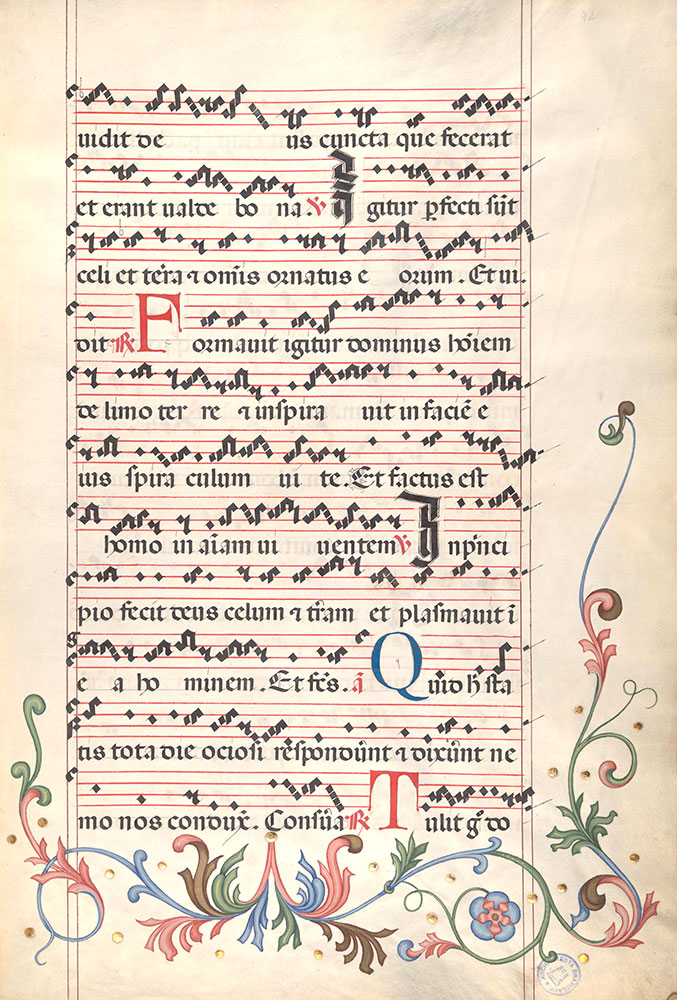 uidit de us cuncta que fecerat
et erant ualde bo na. ℣ Igitur ꝑfecti sūt
celi et terra ⁊ omīs ornatus e orum. Et ui.
dit ℟ Formauit igitur dominus hoīem
de limo ter re ⁊ inspira uit in faciē e
ius spira culum ui te. Et factus est
homo in aīam ui uentem ℣ In pⁱnci
pio fecit deus celum ⁊ trā̄m et plasmauit ī
e a ho minem. Et fcs̄. a̅ Quid h̄ sta
tis tota die ociosi respondūnt ⁊ dixūnt ne
mo nos condux̄. Tulit g̊ do